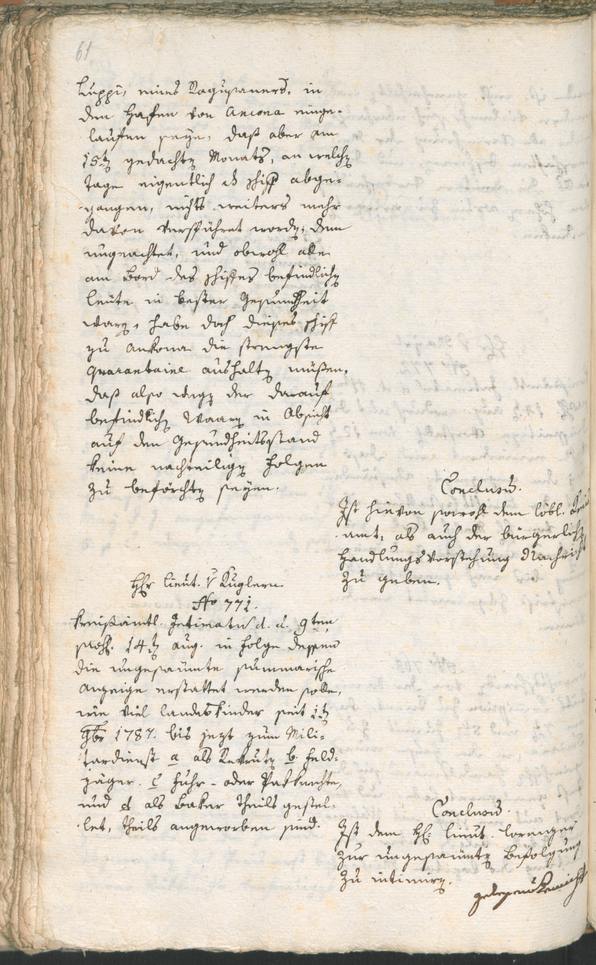 61
Luppi, eines Ragusaners, in
den Hafen von Ancona einge-
laufen seÿe, daß aber am
15tn gedachtn Monats, an welchn
Tage eigentlich d. Schif abge-
gangen, nichts weiters mehr
davon verspühret wordn; dem
ungeachtet, und obwohl alle
am Bord des Schiffes befindlichn
Leute in bester Gesundheit
warn, habe doch dieses Schiff
zu Ankona die strengste
Quarantaine aushaltn müßen,
daß also wegn der darauf
befindlichn Waarn in Absicht
auf den Gesundheitsstand
keine nachteilign Folgen
zu beförchtn seÿen.
Conclusum.
Ist hievon sowohl dem löbl.
amt, als auch der bürgerlichn
Handlungsvorstehung Nachricht
zu geben.
Hr. Lieut. v Kuglern
No 771.
Kreisamtl. Intimatum d. d. 9ten
14tn Aug. in Folge dessen
die ungesäumte summarische
Anzeige erstattet werden solle,
wie viel Landeskinder seit 1tn
9br 1787. bis jezt zum Mili-
tardienst a als Rekrutn b Feld-
jäger. c Fuhr- oder Pakknechte,
und d als Baker Theils gestel-
let, theils angeworben sind.
Conclusum.
Ist dem H. Lieut.
zur ungesäumtn Befolgung
zu intimirn.